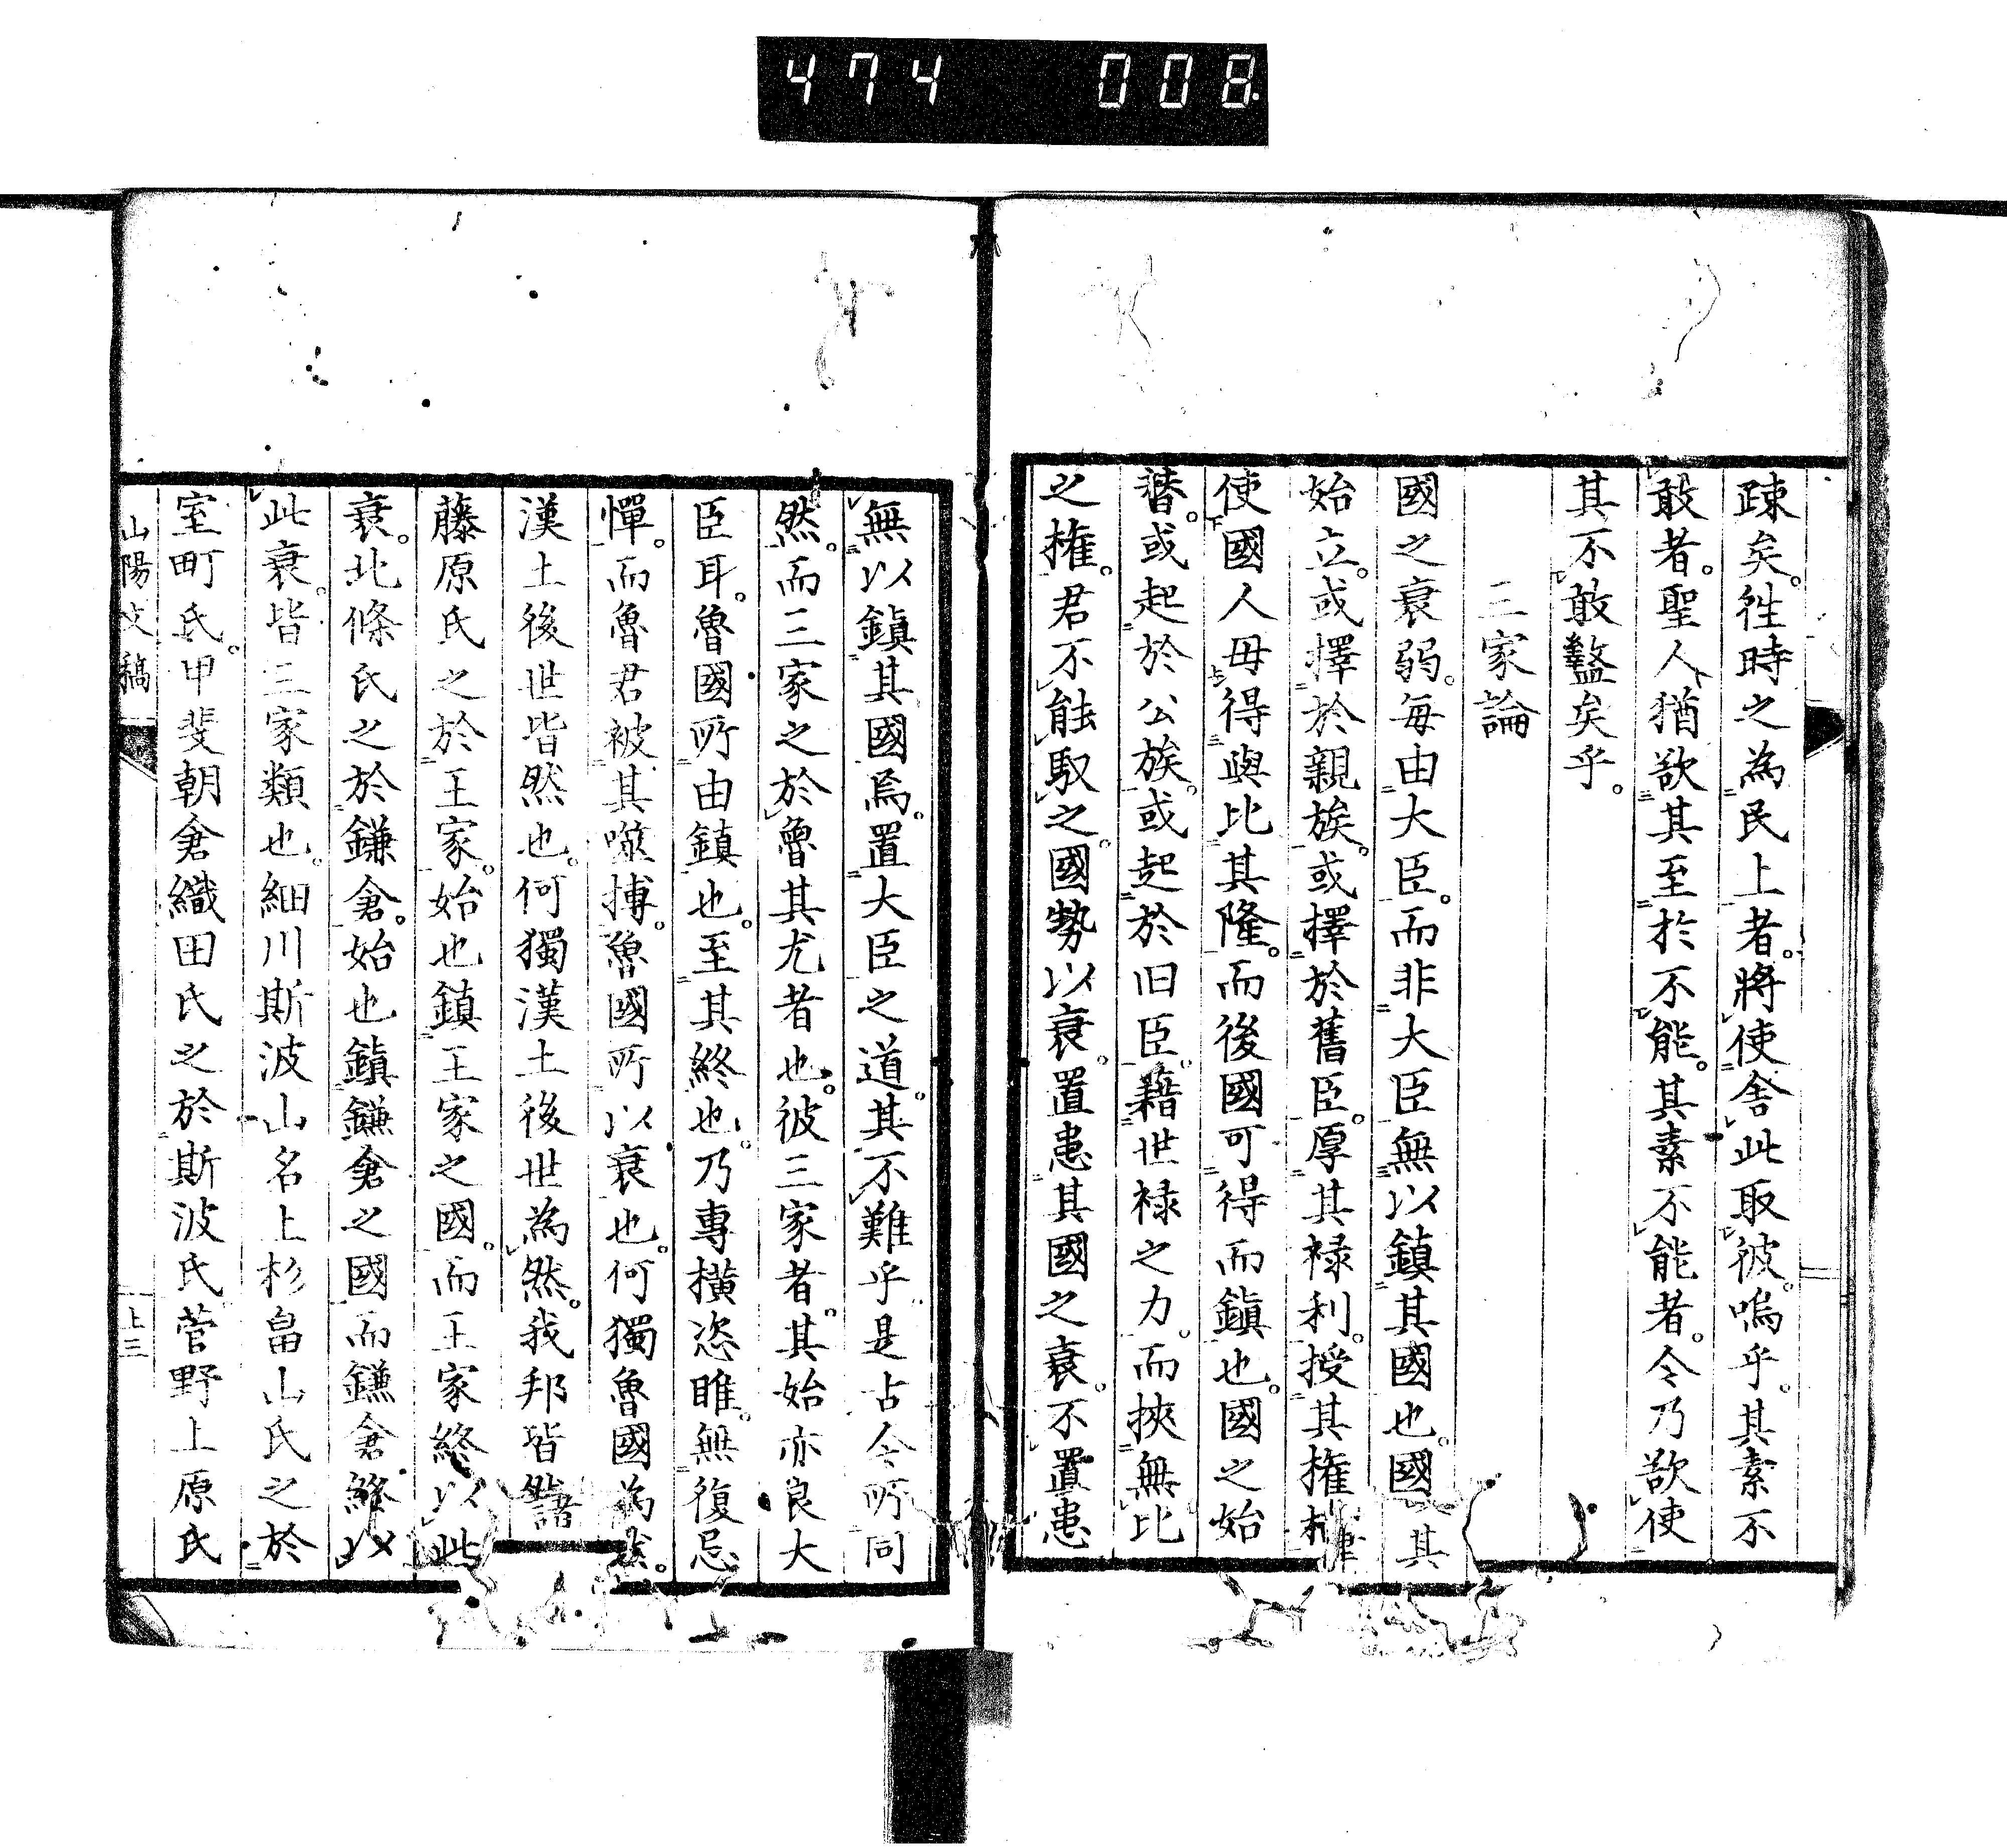 474 008
疎矣。徃時之為民上者。將使舎此取彼。嗚乎。其素不
敢者。聖人猶欲其至於不能。其素不能者。今乃欲使
其不敢盭矣乎。
三家論
國之衰弱。毎由大臣。而非大臣無以鎮其國也。國其
始立。或擇於親族。或擇於舊臣。厚其禄利。授其権
使國人毋得與比其隆。而後國可得而鎮也。國之始
替。或起於公族。或起於旧臣。藉世禄之力。而挾無比
之権。君不能馭之。國勢以衰。置患其國之衰。不置患
無以鎮其國焉。置大臣之道。其不難乎是古今所同
然。而三家之於魯其尤者也。彼三家者。其始亦良大
臣耳。魯國所由鎮也。至其終也。乃專横恣睢。無復忌
憚。而魯君被其噬搏。魯國所以衰也。何獨魯國為然。
漢土後世皆然也。何獨漢土後世為然。我邦皆然諸
藤原氏之於王家。始也鎮王家之國。而王家終以此
衰。北條氏之於鎌倉。始也鎮鎌倉之國而鎌倉終以
此衰。皆三家類也。細川斯波山名上杉畠山氏之於
室町氏。甲斐朝倉織田氏之於斯波氏菅野上原氏
山陽文稿
上三